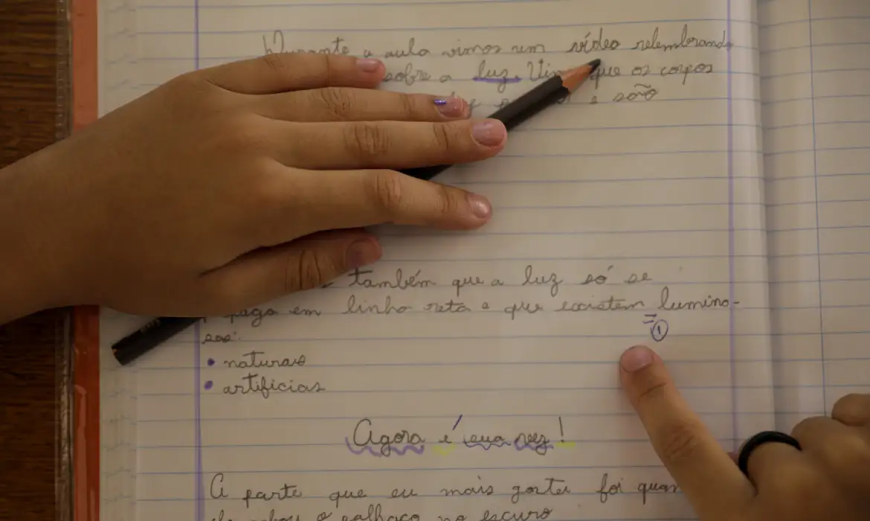 Durante a aula vimos um vídeo relembrando
sobre a luz. que os corpos
e são
também que a luz só se
em linha reta e que existem lumino-
①
sos:
• naturais
• artificias
Agora é sua vez!
A parte que eu mais gostei foi
o palhaço no escuro